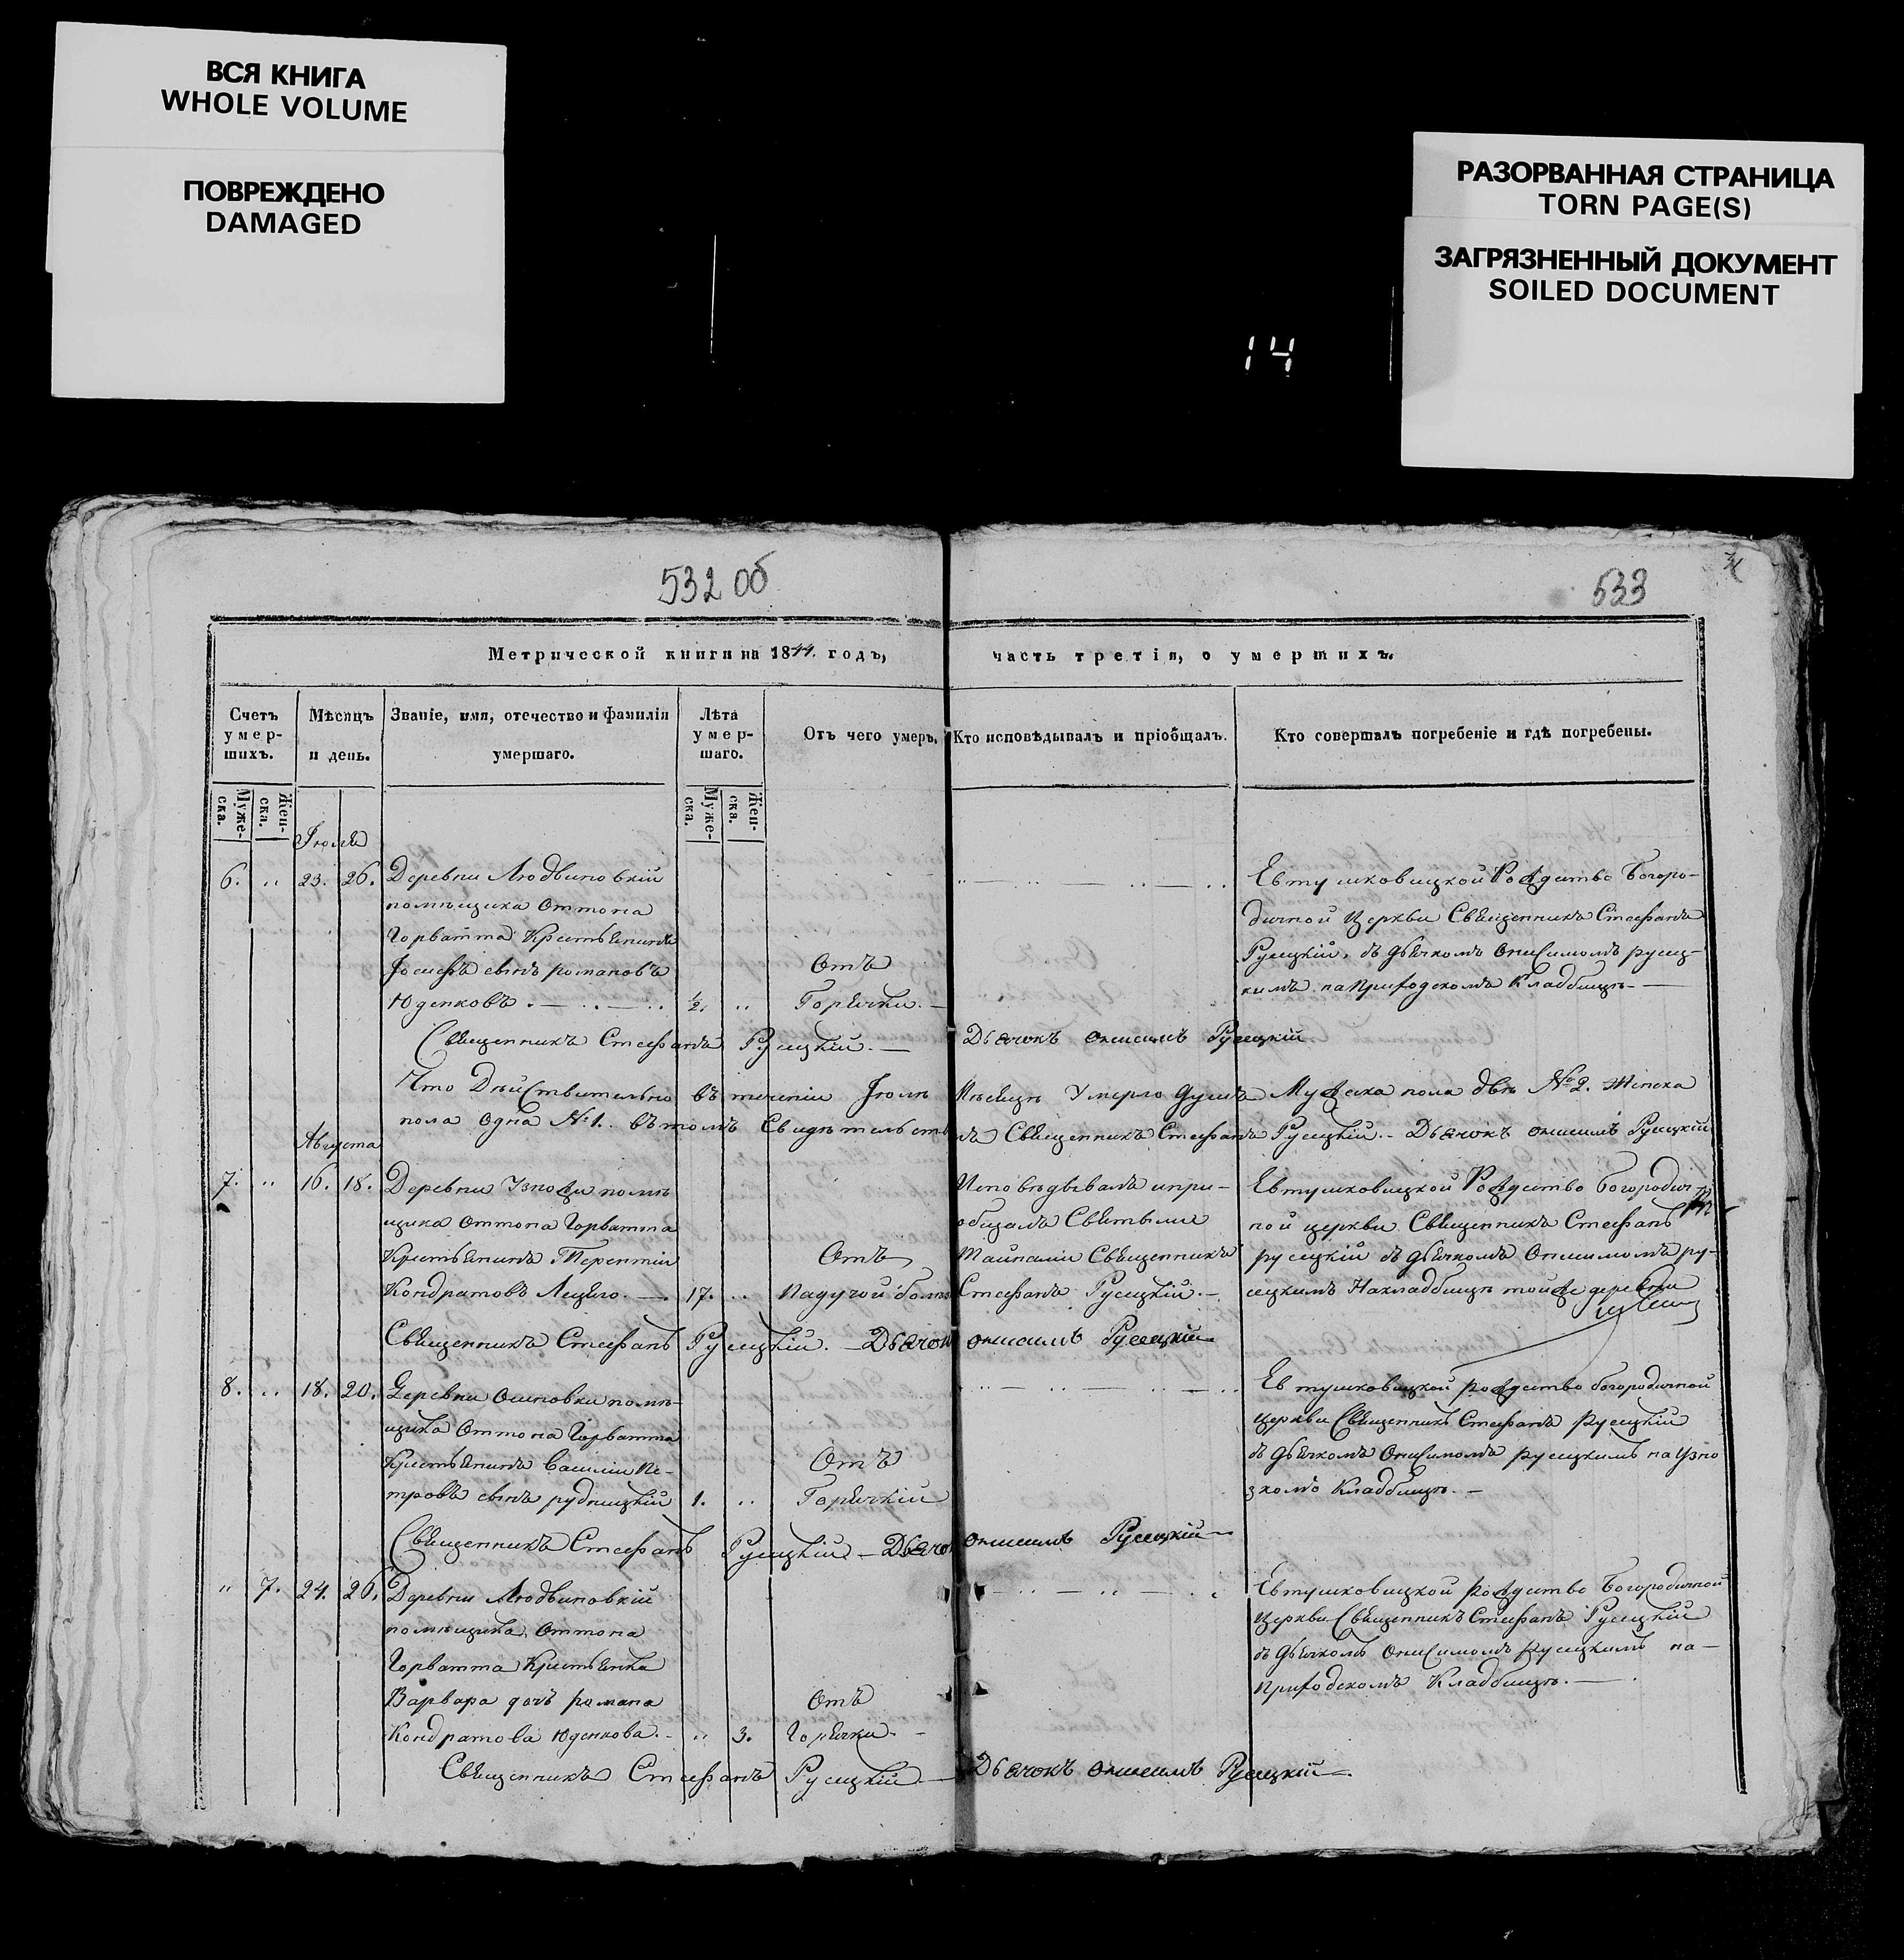 ВСЯ КНИГА
WHOLE VOLUME
ПОВРЕЖДЕНО
DAMAGED
РАЗОРВАННАЯ СТРАНИЦА
TORN PAGE(S)
ЗАГРЯЗНЕННЫЙ ДОКУМЕНТ
SOILED DOCUMENT
14
532 об
533
Метрической книги на 1844. годъ, часть третія, о умершихъ.
Счетъ умер-шихъ.
Муже-ска.
Жен-ска.
Мѣсяцъ и день.
Званіе, имя, отечество и фамилія умершаго.
Лѣта умер-шаго.
Муже-ска.
Жен-ска.
Отъ чего умеръ.
Кто исповѣдывалъ и пріобщалъ.
Кто совершалъ погребеніе и гдѣ погребены.
Іюля
6. „ 23. 26. Деревни Людвиновкій
помѣщика Оттона
Горватта Крестьянинъ
Іосифъ сынъ романовъ
Юденковъ. ½. „
Отъ
Горячки.
Евтушковицкой Рождество Богоро-
дичной Церкви Священникъ Стефанъ
Русецкій, съ дьячкомъ Онисимомъ русец-
кимъ на Приходскомъ Кладбищѣ
Священникъ Стефанъ Русецкій. Дьячокъ Онисимъ Русецкій
Что Дѣйствительно въ теченіи Іюля Мѣсяцѣ Умерло душъ Мужеска пола двѣ № 2. Женска
пола Одна № 1. въ томъ Свидѣтельств Священникъ Стефанъ Русецкій. Дьячокъ Онисимъ Русецкій
Августа
7. „ 16. 18. Деревни Узножи помѣ
щика Оттона Горватта
Крестьянинъ Терентій
Кондратовъ 17. „
Отъ
Падучой болѣ
Исповѣдывалъ и прі-
общалъ Святыми
Тайнами Священникъ
Стефанъ Русецкій.
Евтушковицкой Рождество Богородич-
ной церкви Священникъ Стефанъ
русецкій съ дьячкомъ Онисимомъ ру-
сецкимъ На кладбищѣ тойже деревни
Священникъ Стефанъ Русецкій. Дьячок Онисимъ Русецкій
8. „ 18. 20. Деревни Осиповки помѣ-
щика Оттона Горватта
Крестьянинъ Василій Пе-
тровъ сынъ рудницкій 1. „
Отъ
Горячкій
Евтушковицкой рождество богородичной
церкви Священникъ Стефанъ Русецкій
съ дьячкомъ Онисимомъ русецкимъ на Узно
зкомъ Кладбищѣ.
Священникъ Стефанъ Русецкій. Дьячо Онисимъ Русецкій
„ 7. 24. 26. Деревни Людвиновкій
помѣщика Оттона
Горватта Крестьянка
Варвара дочь романа
Кондратова Юденкова. „ 3.
Отъ
Горячки.
Евтушковицкой рождество Богородичной
Церкви Священникъ Стефанъ Русецкій
съ дьячкомъ Онисимомъ Русецкимъ на
Приходскомъ Кладбищѣ.
Священникъ Стефанъ Русецкій. Дьячокъ Онисимъ Русецкій.